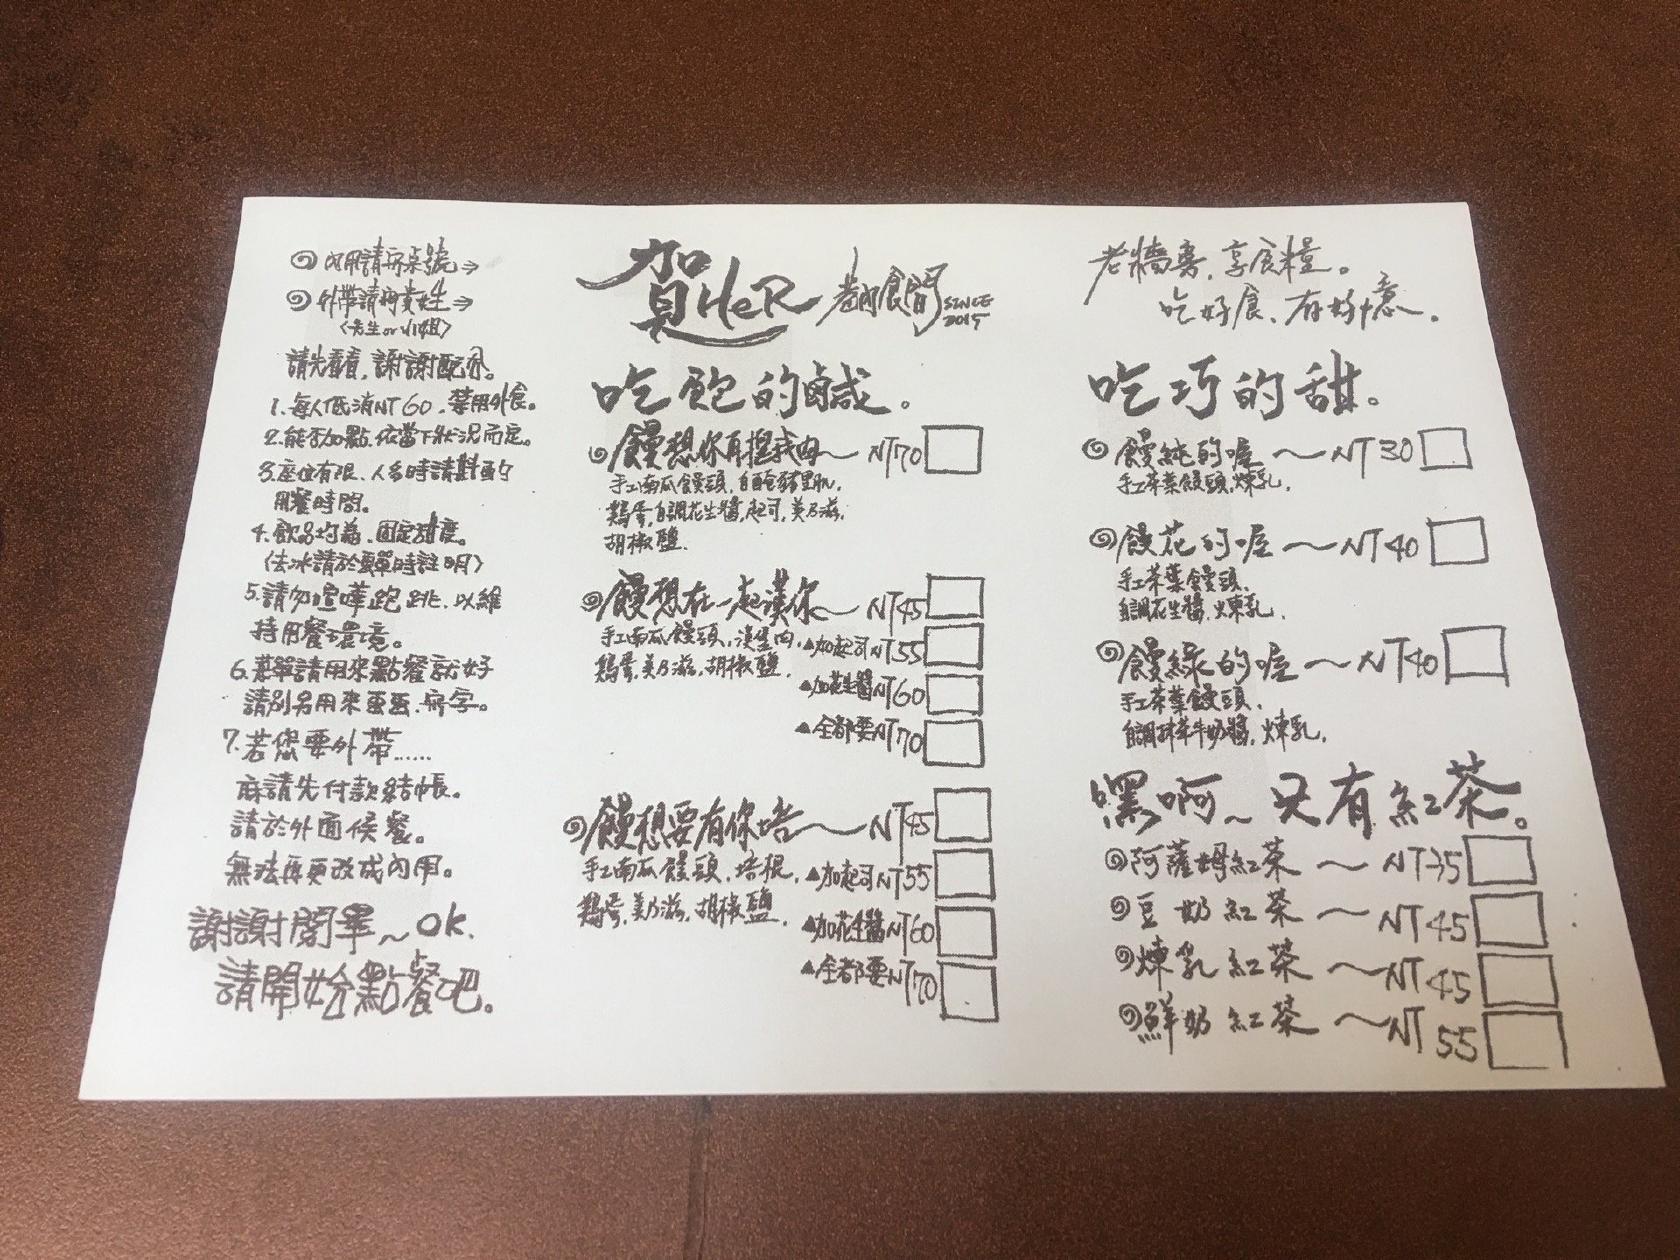 內用請寫桌號→
外帶請寫貴姓→
(先生or小姐)
請先看看,謝謝配合。
1.每人低消NT60.禁用外食。
2.能否加點.依當下狀況而定。
3.座位有限、人多時請斟酌
用餐時間。
4.飲品均為.固定甜度。
(去冰請於畫單時註明)
5.請勿喧嘩跑跳.以維
持用餐環境。
6.菜單請用來點餐就好
請別另用來畫畫.寫字。
7.若您要外帶......
麻請先付款結帳。
請於外面候餐。
無法再更改成內用。
謝謝閱畢~OK.
請開始點餐吧。
賀HeR 巷內食間 SINCE 2015
吃飽的鹹。
饅想你再揑我肉~NT70
手工南瓜饅頭,自醃豬里肌,
鷄蛋,自調花生醬,起司,美乃滋,
胡椒鹽.
饅想在一起漢你~NT45
手工南瓜饅頭,漢堡肉,
鷄蛋,美乃滋,胡椒鹽.
▲加起司NT55
▲加花生醬NT60
▲全都要NT70
饅想要有你培~NT45
手工南瓜饅頭,培根,
鷄蛋,美乃滋,胡椒鹽.
▲加起司NT55
▲加花生醬NT60
▲全都要NT70
老牆旁,享食糧。
吃好食、有好憶.
吃巧的甜。
饅純的喔~NT30
手工茶葉饅頭,煉乳.
饅花的喔~NT40
手工茶葉饅頭.
自調花生醬,煉乳.
饅綠的喔~NT40
手工茶葉饅頭.
自調抹茶牛奶醬,煉乳.
嘿啊~只有紅茶。
阿薩姆紅茶~NT35
豆奶紅茶~NT45
煉乳紅茶~NT45
鮮奶紅茶~NT55